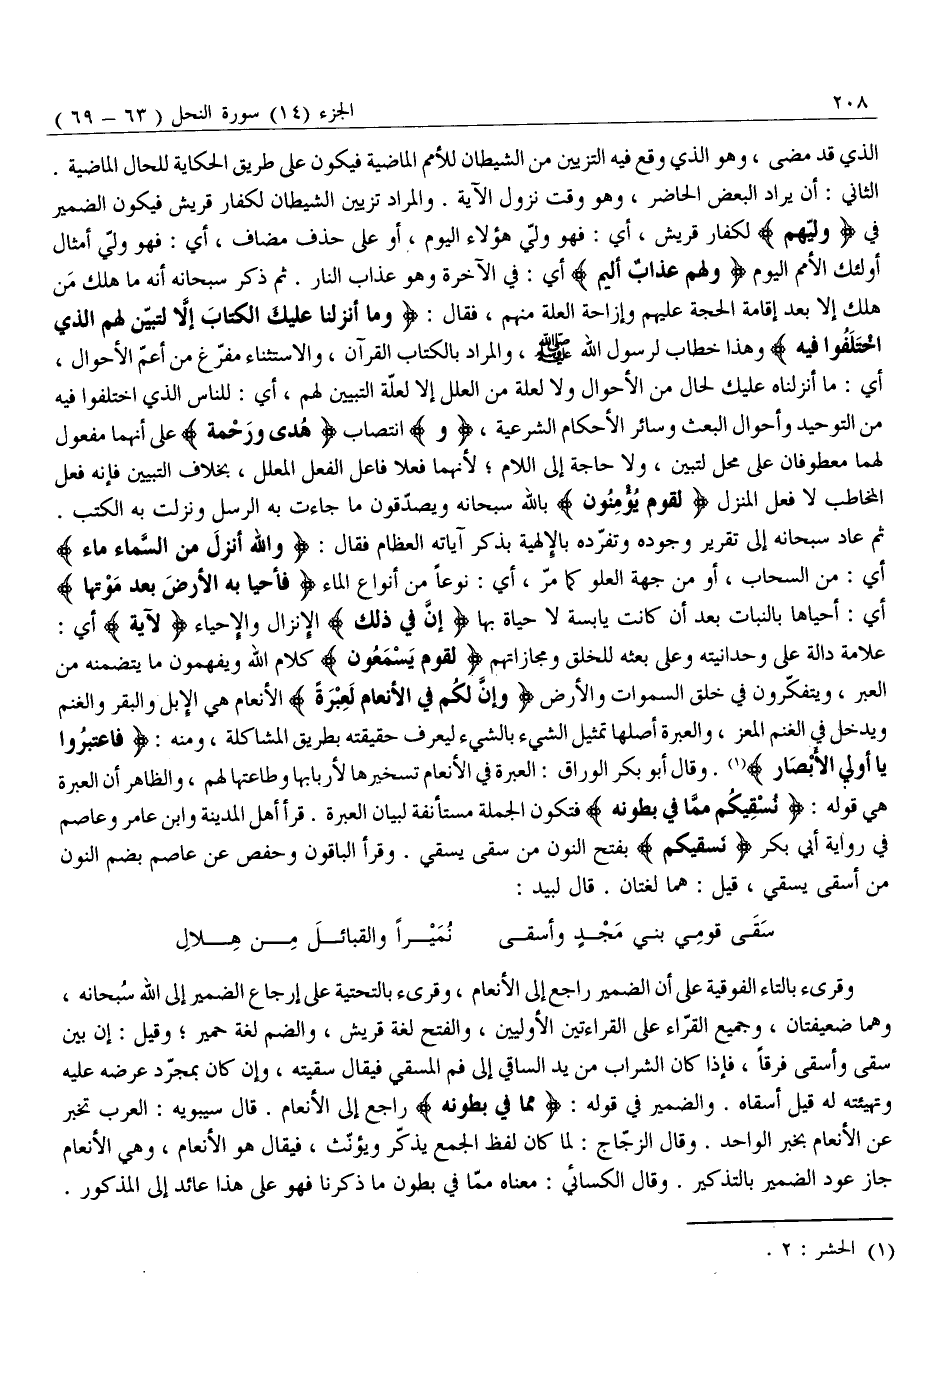 ٢٠٨
الجزء (١٤) سورة النحل ( ٦٣ – ٦٩ )
الذي قد مضى ، وهو الذي وقع فيه التزيين من الشيطان للأمم الماضية فيكون على طريق الحكاية للحال الماضية .
الثاني : أن يراد البعض الحاضر ، وهو وقت نزول الآية . والمراد تزيين الشيطان لكفار قريش فيكون الضمير
في ﴿ وليّهم ﴾ لكفار قريش ، أي : فهو وليّ هؤلاء اليوم ، أو على حذف مضاف ، أي : فهو وليّ أمثال
أولئك الأمم اليوم ﴿ ولهم عذابٌ أليم ﴾ أي : في الآخرة وهو عذاب النار . ثم ذكر سبحانه أنه ما هلك مَن
هلك إلا بعد إقامة الحجة عليهم وإزاحة العلة منهم ، فقال : ﴿ وما أنزلنا عليك الكتابَ إلَّا لتبيّن لهم الذي
اخْتَلَفُوا فيه ﴾ وهذا خطاب لرسول الله ﷺ ، والمراد بالكتاب القرآن ، والاستثناء مفرّغ من أعمّ الأحوال ،
أي : ما أنزلناه عليك لحال من الأحوال ولا لعلة من العلل إلا لعلّة التبيين لهم ، أي : للناس الذي اختلفوا فيه
من التوحيد وأحوال البعث وسائر الأحكام الشرعية ، ﴿ و ﴾ انتصاب ﴿ هُدى ورَحْمة ﴾ على أنهما مفعول
لهما معطوفان على محل لتبين ، ولا حاجة إلى اللام ؛ لأنهما فعلا فاعل الفعل المعلل ، بخلاف التبيين فإنه فعل
المخاطب لا فعل المنزل ﴿ لقوم يُؤْمِنُون ﴾ بالله سبحانه ويصدّقون ما جاءت به الرسل ونزلت به الكتب .
ثم عاد سبحانه إلى تقرير وجوده وتفرّده بالإلهية بذكر آياته العظام فقال : ﴿ والله أنزلَ من السَّماء ماء ﴾
أي : من السحاب ، أو من جهة العلو كما مرّ ، أي : نوعاً من أنواع الماء ﴿ فأحيا به الأرضَ بعد مَوْتها ﴾
أي : أحياها بالنبات بعد أن كانت يابسة لا حياة بها ﴿ إنَّ في ذلك ﴾ الإنزال والإحياء ﴿ لآية ﴾ أي :
علامة دالة على وحدانيته وعلى بعثه للخلق ومجازاتهم ﴿ لقوم يَسْمَعُون ﴾ كلام الله ويفهمون ما يتضمنه من
العبر ، ويتفكّرون في خلق السموات والأرض ﴿ وإنَّ لكُم في الأنعام لَعِبْرَةً ﴾ الأنعام هي الإبل والبقر والغنم
ويدخل في الغنم المعز ، والعبرة أصلها تمثيل الشيء بالشيء ليعرف حقيقته بطريق المشاكلة ، ومنه : ﴿ فاعتبرُوا
يا أولي الأَبْصَار ﴾(١) . وقال أبو بكر الوراق : العبرة في الأنعام تسخيرها لأربابها وطاعتها لهم ، والظاهر أن العبرة
هي قوله : ﴿ نُسْقِيكُم ممَّا في بطونه ﴾ فتكون الجملة مستأنفة لبيان العبرة . قرأ أهل المدينة وابن عامر وعاصم
في رواية أبي بكر ﴿ نَسقيكم ﴾ بفتح النون من سقى يسقي . وقرأ الباقون وحفص عن عاصم بضم النون
من أسقى يسقي ، قيل : هما لغتان . قال لبيد :
سَقَى قومِي بني مَجْدٍ وأسقى نُمَيْراً والقبائلَ مِن هِلالِ
وقرىء بالتاء الفوقية على أن الضمير راجع إلى الأنعام ، وقرىء بالتحتية على إرجاع الضمير إلى الله سُبحانه ،
وهما ضعيفتان ، وجميع القرّاء على القراءتين الأوليين ، والفتح لغة قريش ، والضم لغة حمير ؛ وقيل : إن بين
سقى وأسقى فرقاً ، فإذا كان الشراب من يد الساقي إلى فم المسقي فيقال سقيته ، وإن كان بمجرّد عرضه عليه
وتهيئته له قيل أسقاه . والضمير في قوله : ﴿ مما في بطونه ﴾ راجع إلى الأنعام . قال سيبويه : العرب تخبر
عن الأنعام بخبر الواحد . وقال الزجّاج : لما كان لفظ الجمع يذكّر ويؤنّث ، فيقال هو الأنعام ، وهي الأنعام
جاز عود الضمير بالتذكير . وقال الكسائي : معناه ممّا في بطون ما ذكرنا فهو على هذا عائد إلى المذكور .
(١) الحشر : ٢ .